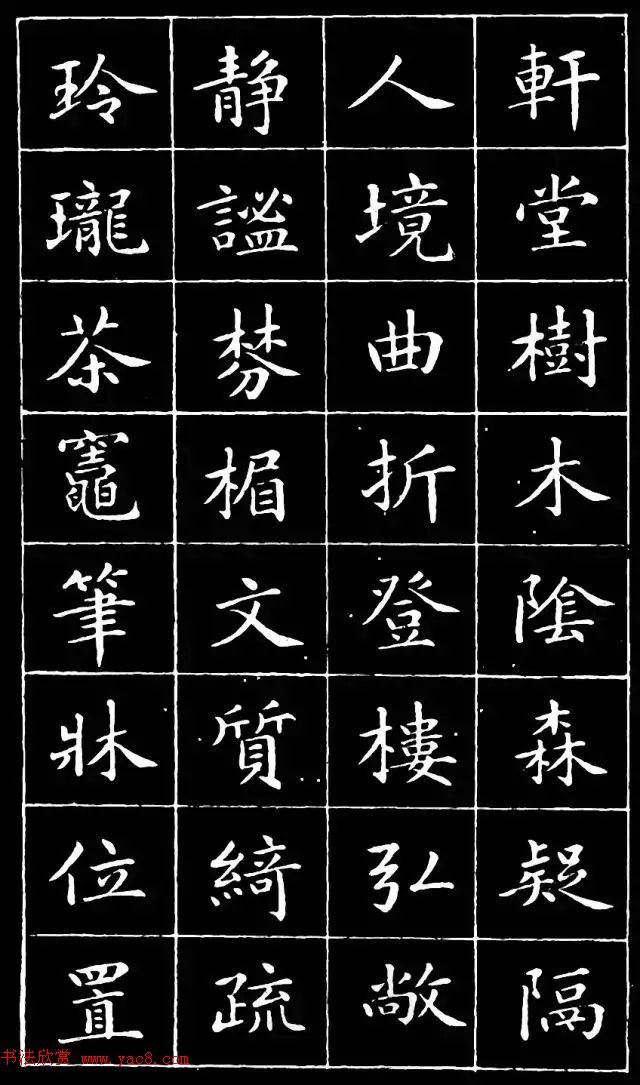 軒堂樹木陰森疑隔
人境曲折登樓弘敞
静謐棼楣文質綺疏
玲瓏茶竈筆牀位置
书法欣赏 www.yac8.com